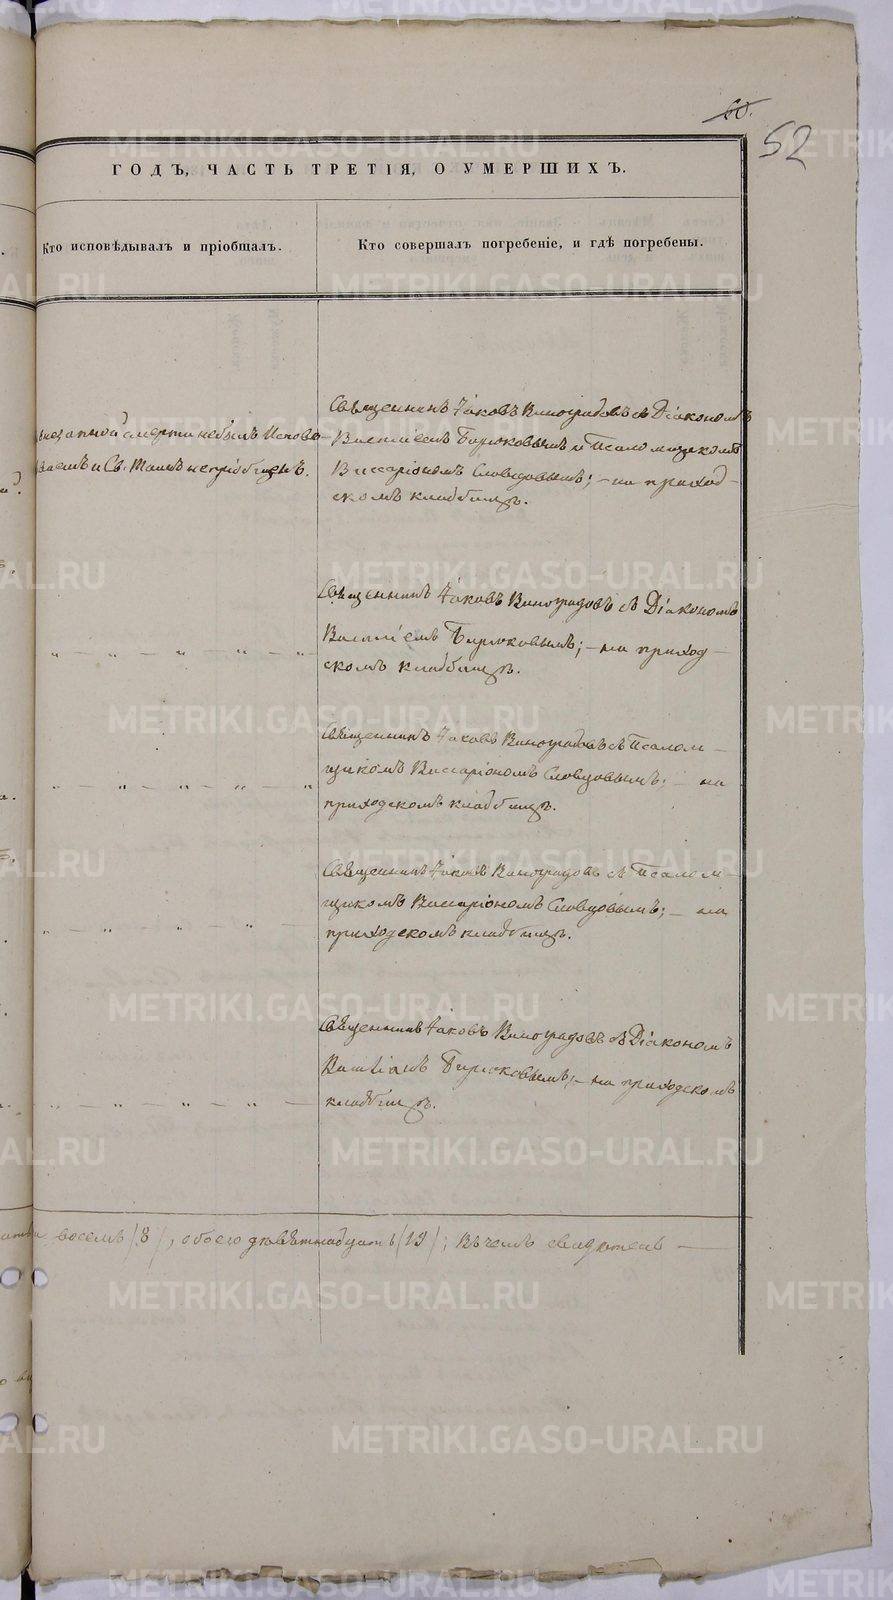 60.
52
ГОДЪ, ЧАСТЬ ТРЕТІЯ, О УМЕРШИХЪ.
Кто исповѣдывалъ и пріобщалъ.
Кто совершалъ погребеніе, и гдѣ погребены.
Священникъ Іаковъ Виноградовъ съ Діакономъ
Василіемъ Бирюковымъ и Псаломщикомъ
Виссаріономъ Словцовымъ; – на приход-
скомъ кладбищѣ.
внезапной смерти небылъ Исповѣ-
и Св. Таинъ непріобщенъ.
Священникъ Іаковъ Виноградовъ съ Діакономъ
Василіемъ Бирюковымъ; – на приход-
скомъ кладбищѣ.
„ – „ – „ – „ – „
Священникъ Іаковъ Виноградовъ съ Псалом-
щикомъ Виссаріономъ Словцовымъ; – на
приходскомъ кладбищѣ.
„ – „ – „ – „ – „
Священникъ Іаковъ Виноградовъ съ Псалом-
щикомъ Виссаріономъ Словцовымъ; – на
приходскомъ кладбищѣ.
„ – „ – „ – „ –
Священникъ Іаковъ Виноградовъ съ Діакономъ
Бирюковымъ; – на приходскомъ
кладбищѣ.
„ – „ – „ – „ – „ –
восемь /8/, обоего девятнадцать /19/; въ чемъ свидѣтель –
METRIKI.GASO-URAL.RU